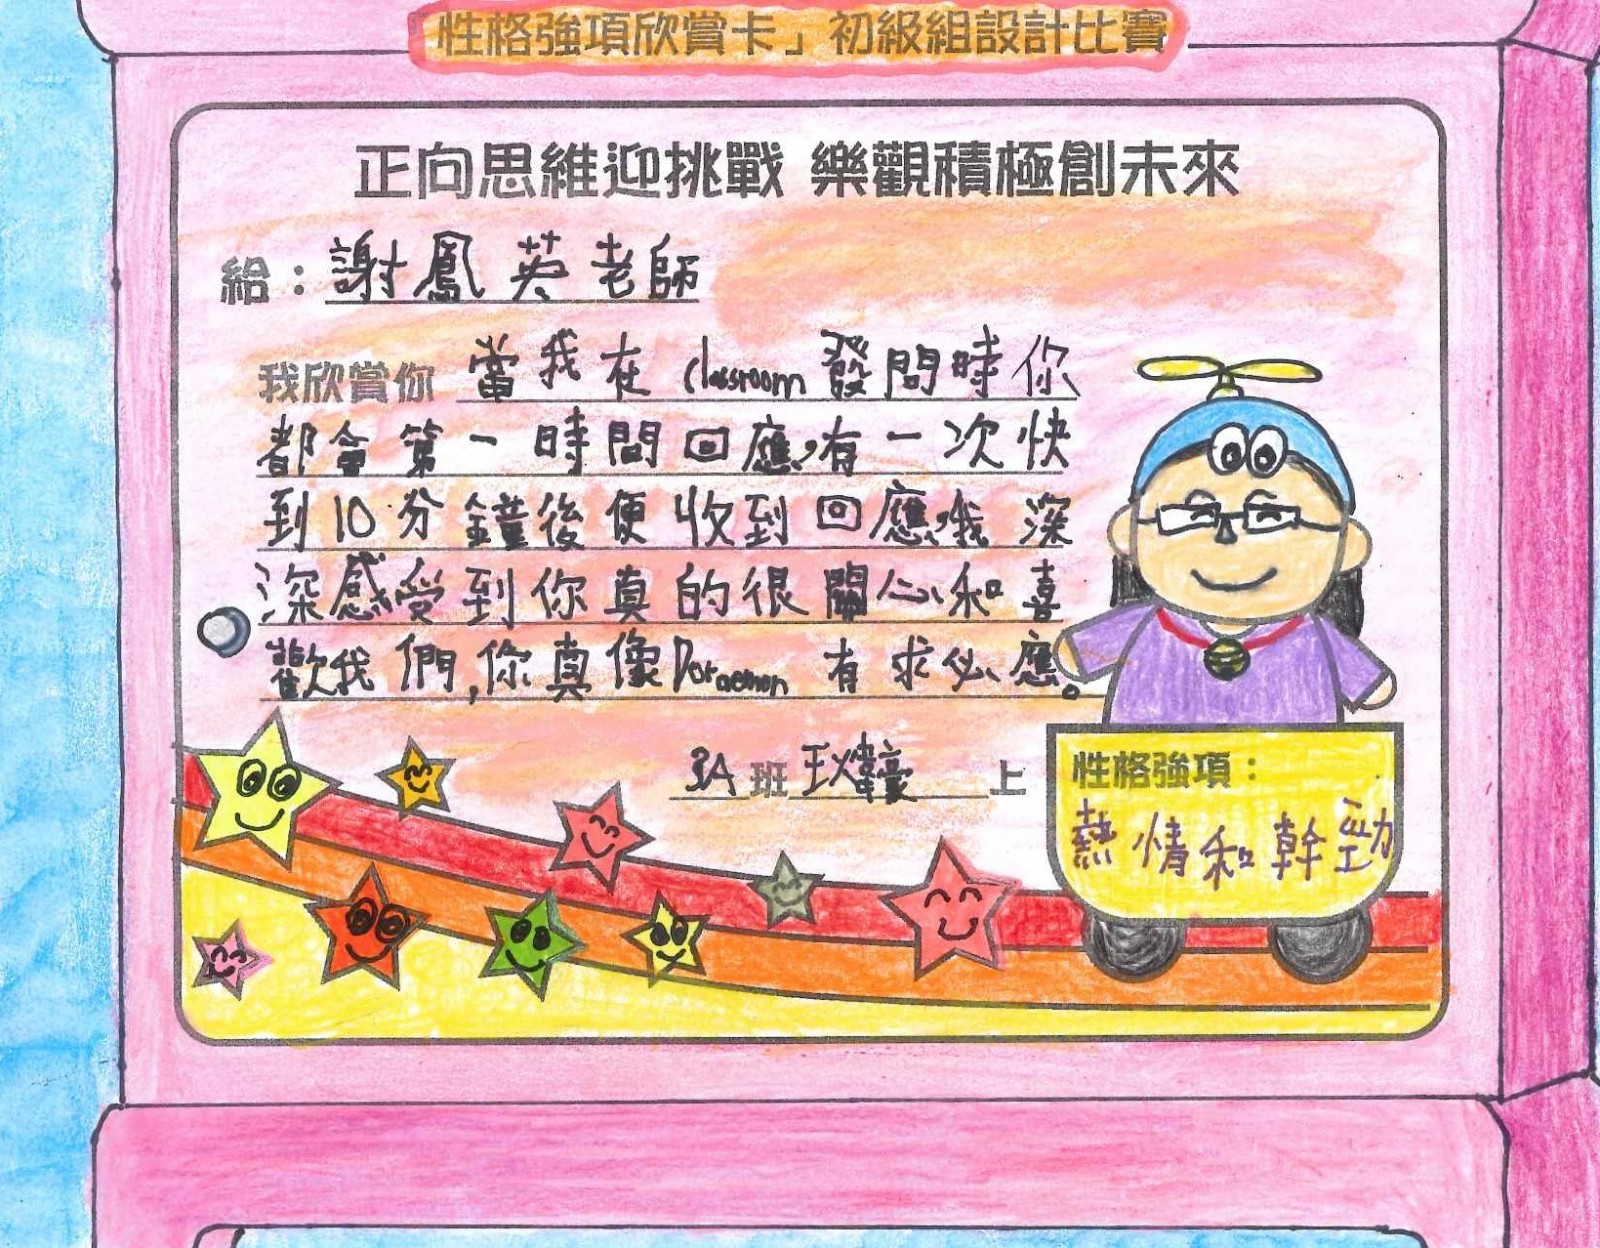 性格強項欣賞卡」初級組設計比賽
正向思維迎挑戰 樂觀積極創未來
給：謝鳳英老師
我欣賞你 當我在 classroom 發問時你
都會第一時間回應,有一次快
到10分鐘後便收到回應,我深
深感受到你真的很關心和喜
歡我們,你真像Doraemon 有求必應。
3A 班 上
性格強項：
熱情和幹勁